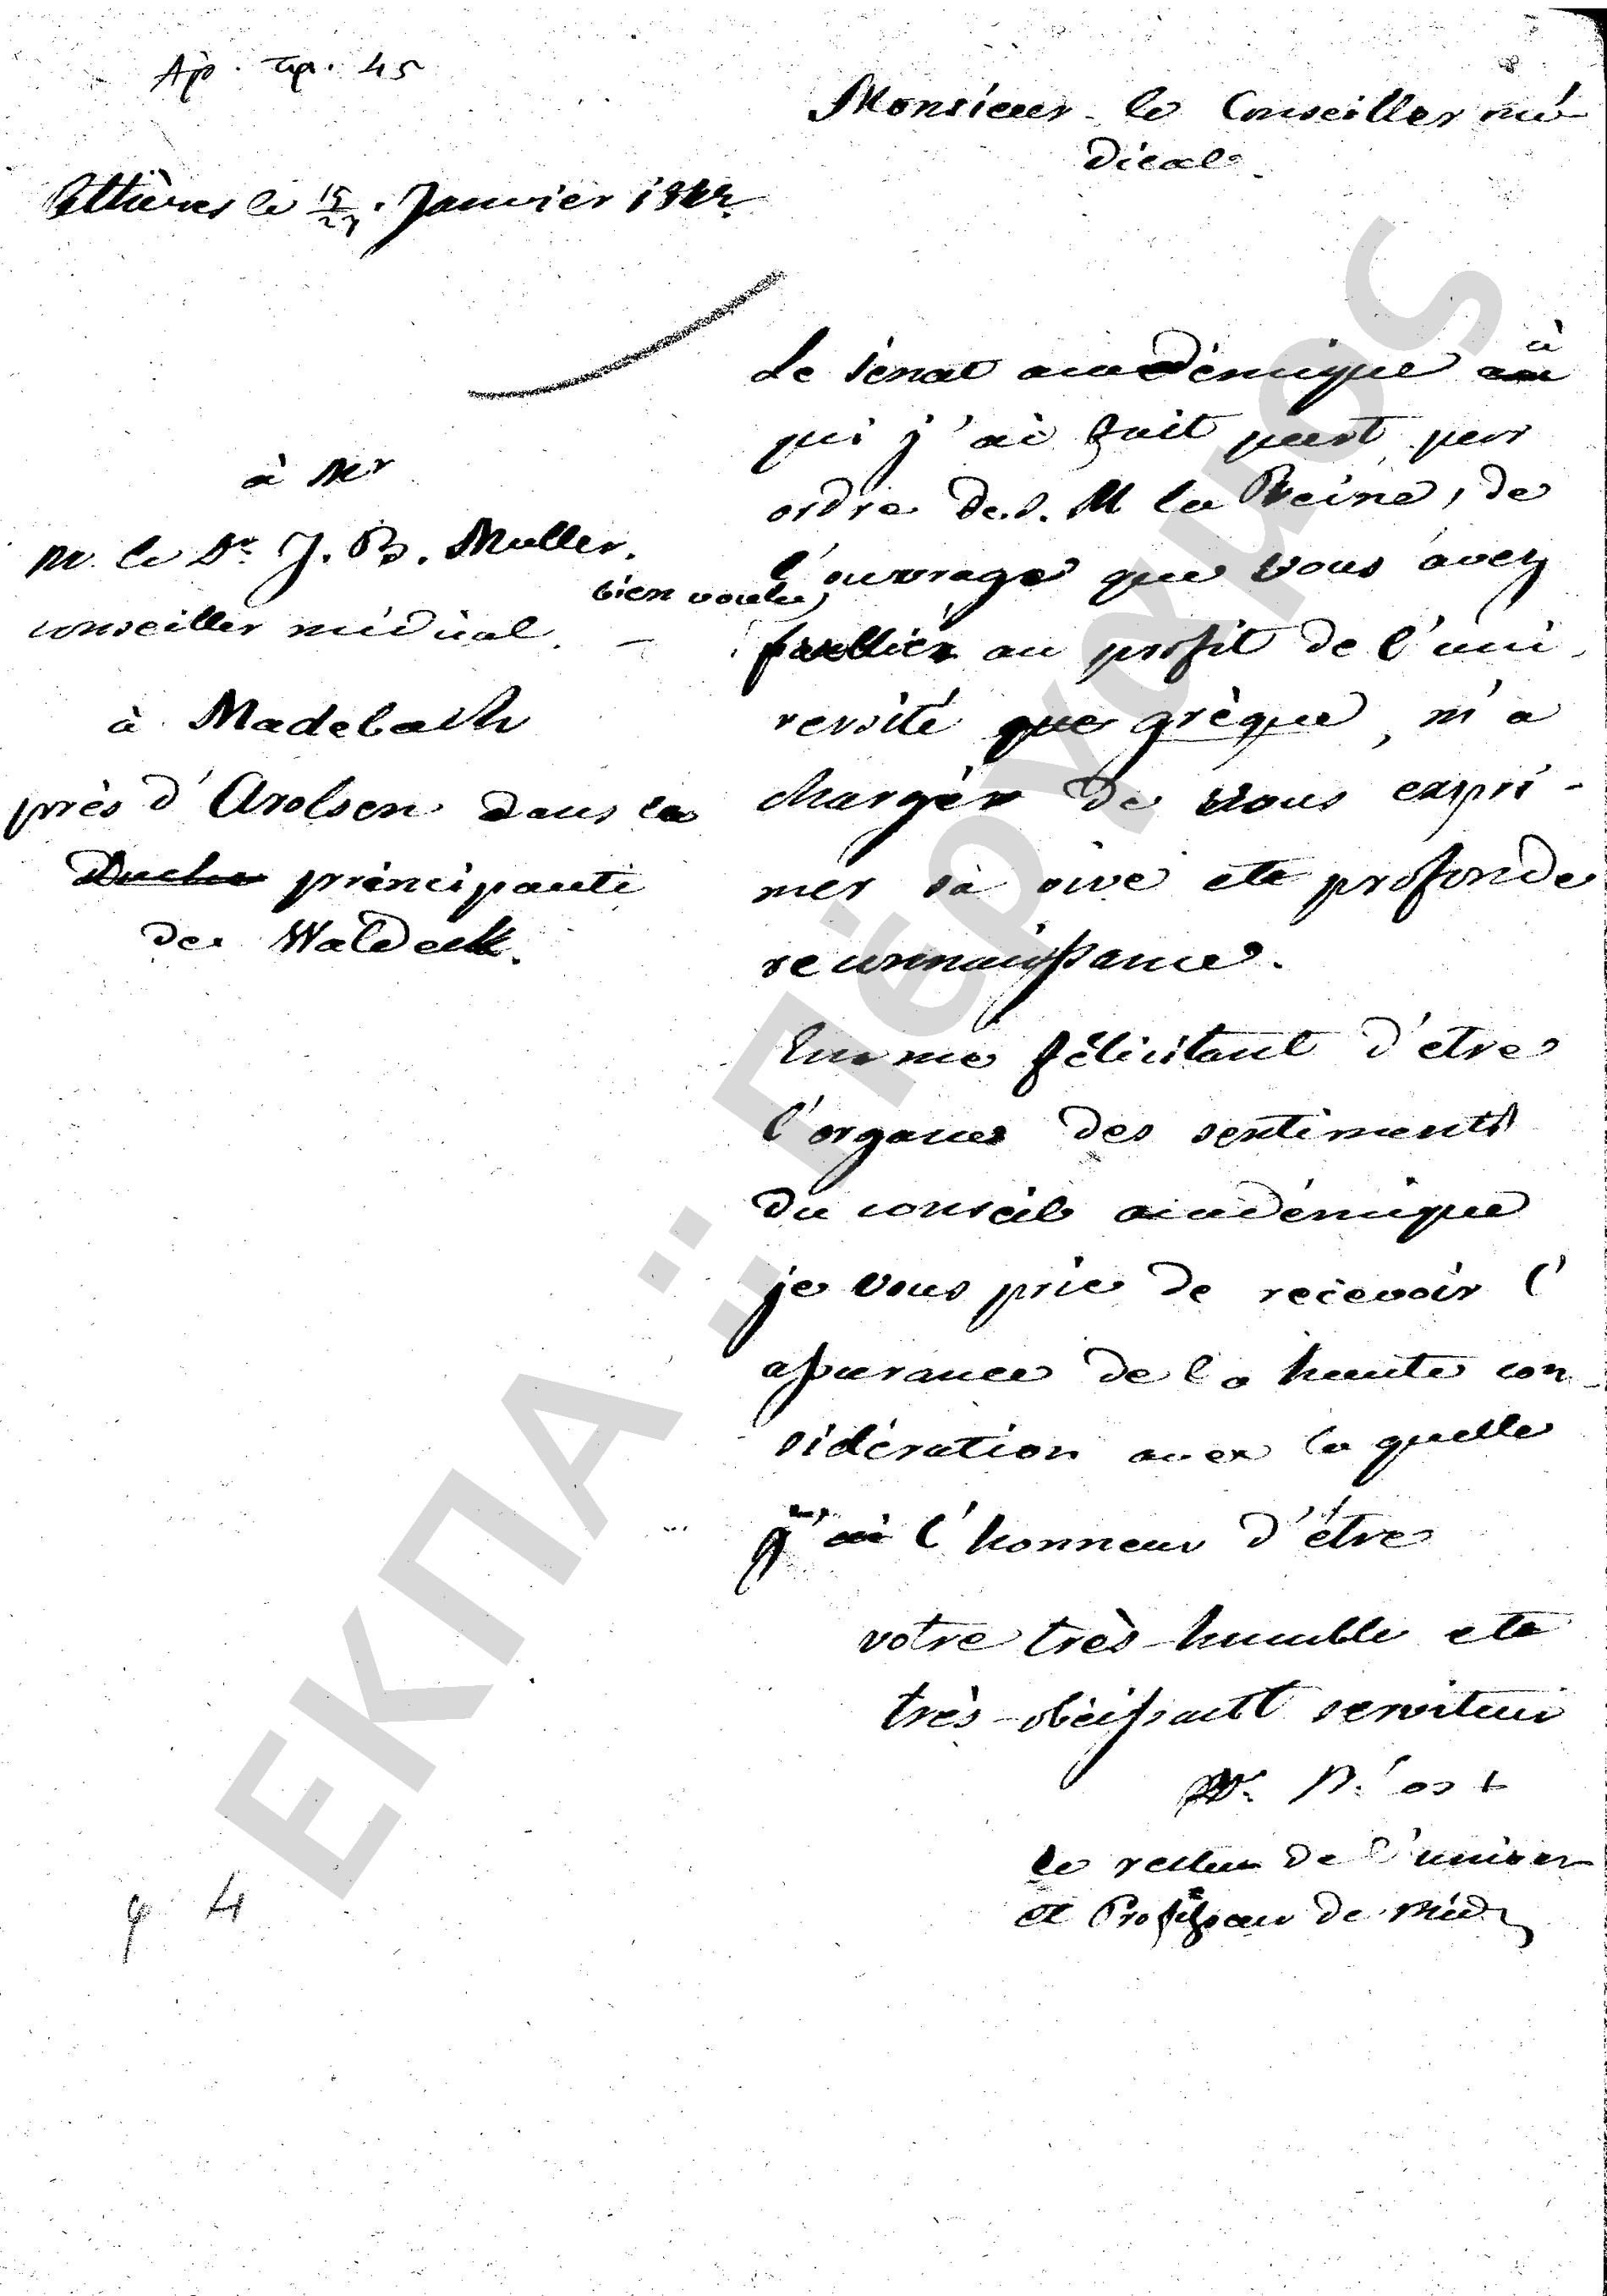 Αρ. πρ. 45
Athènes le 15/27. Janvier 1842
à Mr
Mr. le Dr. J. B. Muller.
conseiller médical.
à Madebach
près d'Arolsen dans la
Duché principauté
de Waldeck.
Monsieur le Conseiller mé-
dical
Le sénat académique au à
qui j'ai fait part par
ordre de S. M la Reine, de
l'ouvrage que vous avez
bien voulu
publier au profit de l'uni-
versité grèque, m'a
charger de vous expri-
mer sa vive et profonde
reconnaissance.
En me félicitant d'etre
l'organe des sentiments
du conseil académique
je vous prie de recevoir l'
assurance de la haute con-
sidération avec la quelle
j'ai l'honneur d'être
votre très-humble et
très-obéissant serviteur
le recteur de l'univer
et Professeur de Méd
φ 4
ΕΚΠΑ :: Πέργαμος